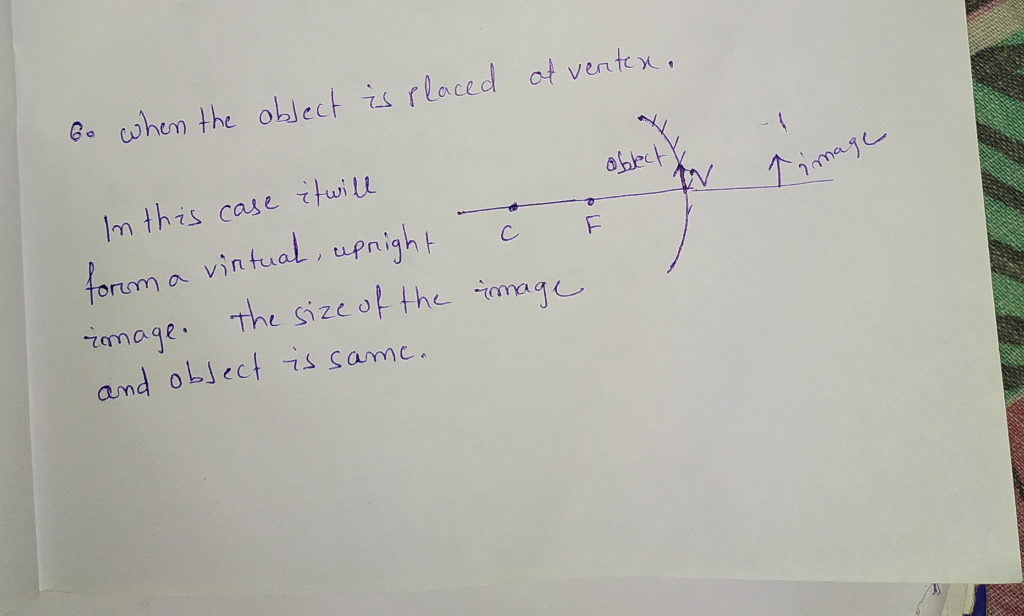 6. when the object is placed at vertex.
object
V
image
In this case it will
C
F
form a virtual, upright
image. The size of the image
and object is same.